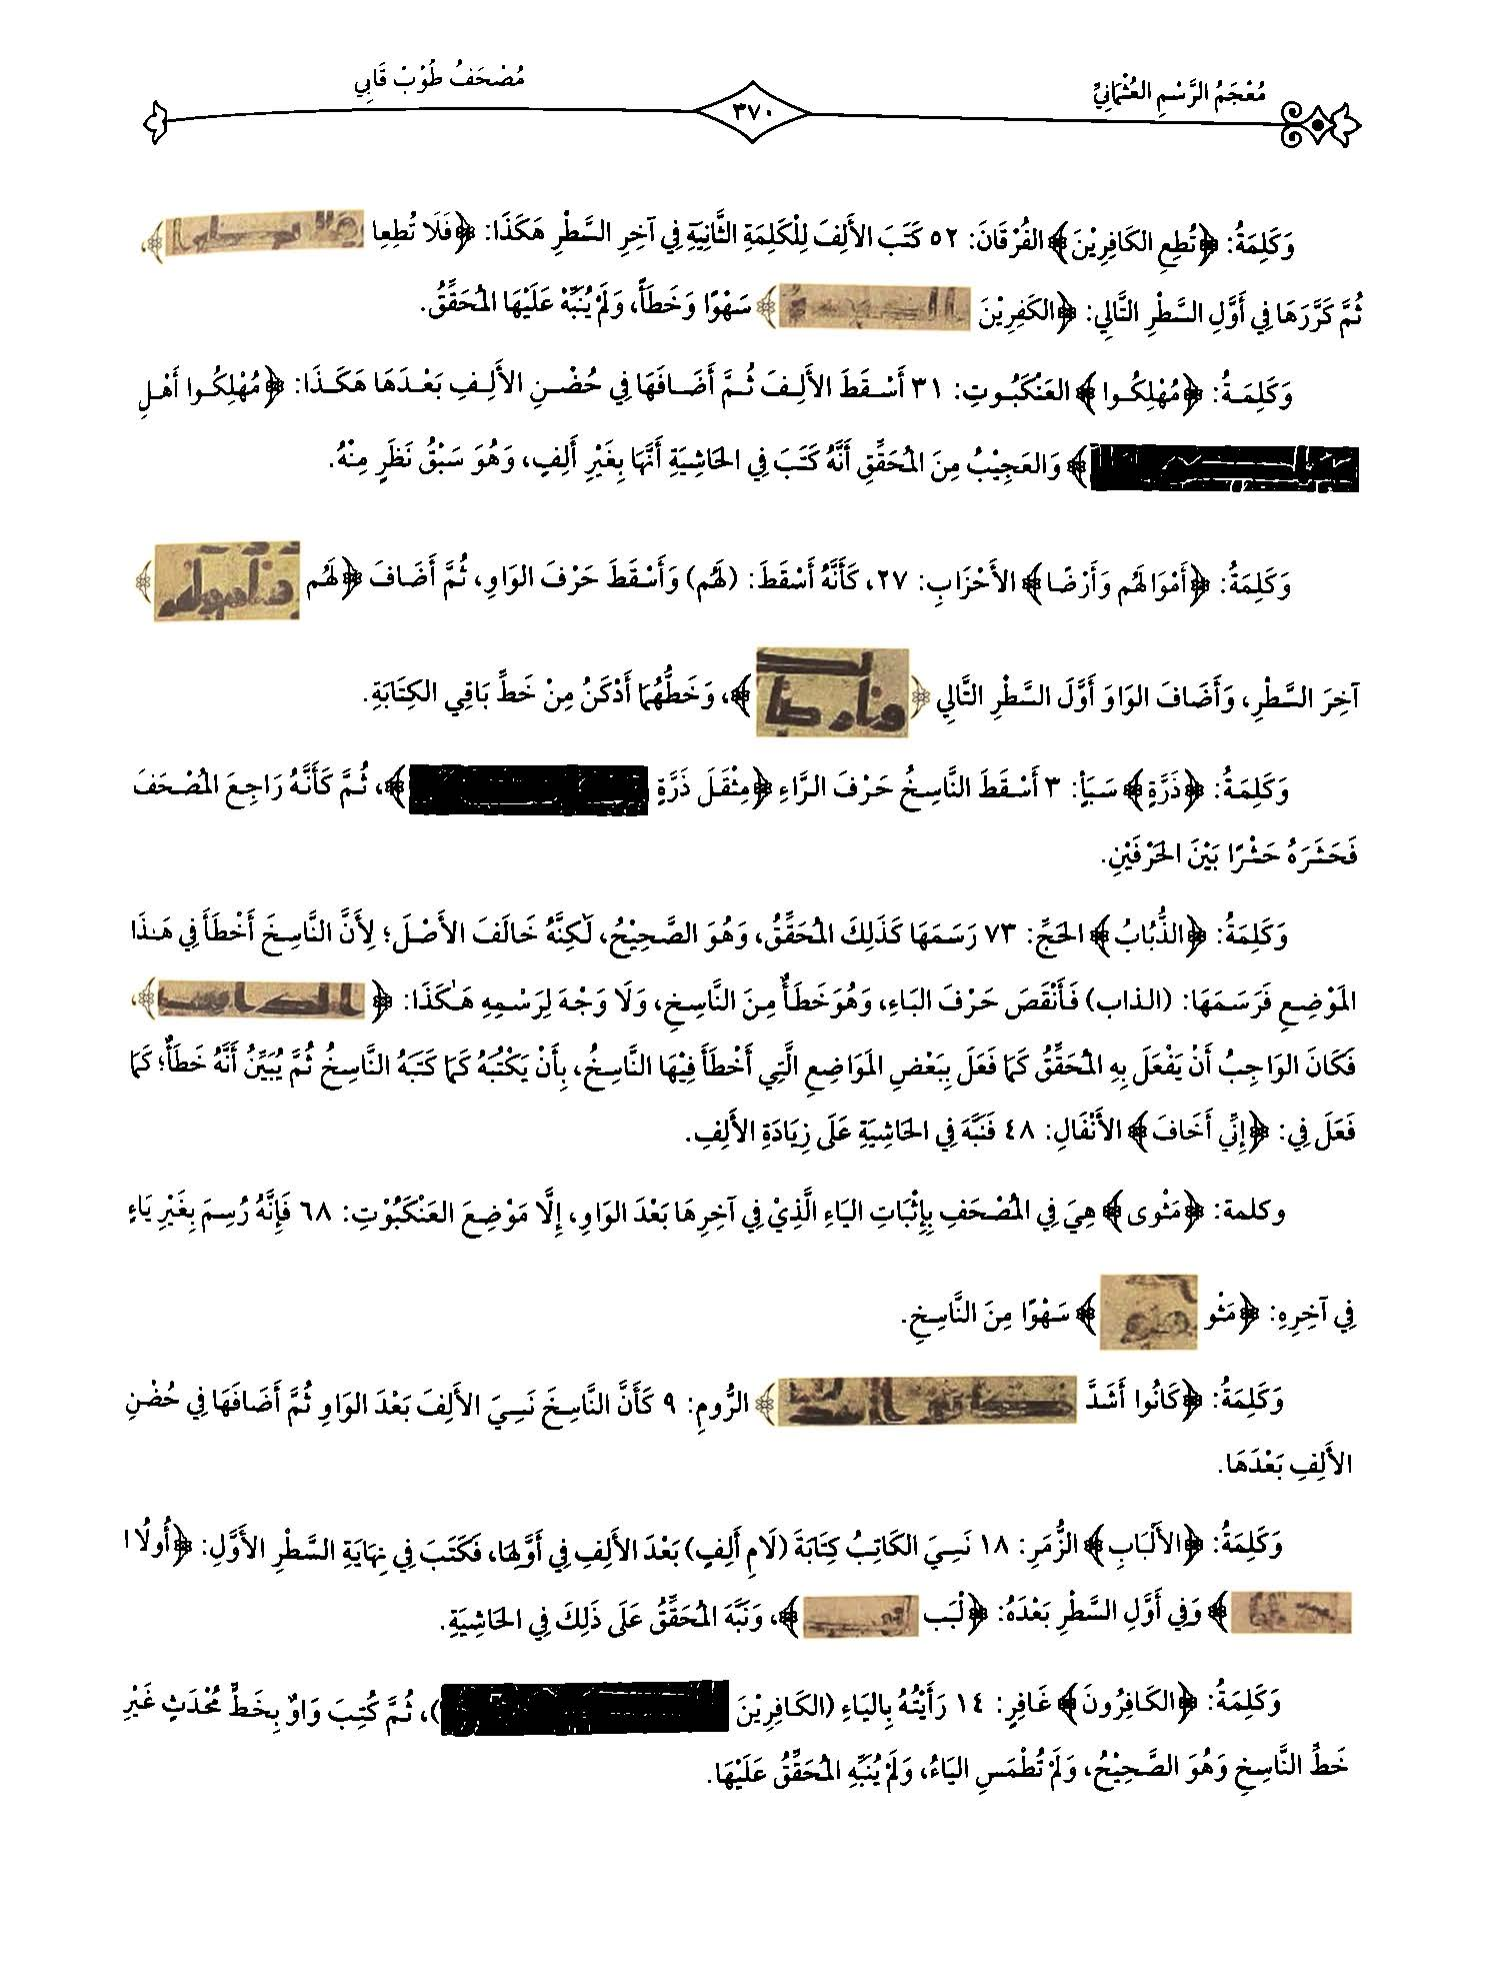 مُعْجَمُ الرَّسْمِ العُثْمَانِيِّ
٣٧٠
مُصْحَفُ طُوْبْ قَابِي
وَكَلِمَةُ: ﴿تُطِعِ الكَافِرِيْنَ﴾ الفُرْقَانَ: ٥٢ كَتَبَ الأَلِفَ لِلْكَلِمَةِ الثَّانِيَةِ فِي آخِرِ السَّطْرِ هَكَذَا: ﴿فَلَا تُطِعِا ﴾،
ثُمَّ كَرَّرَهَا فِي أَوَّلِ السَّطْرِ التَّالِي: ﴿الكَفِرِيْنَ ﴾ سَهْوًا وَخَطَأً، وَلَمْ يُنَبِّهْ عَلَيْهَا المُحَقِّقُ.
وَكَلِمَةُ: ﴿مُهْلِكُوا﴾ العَنْكَبُوتِ: ٣١ أَسْقَطَ الأَلِفَ ثُمَّ أَضَافَهَا فِي حُضْنِ الأَلِفِ بَعْدَهَا هَكَذَا: ﴿مُهْلِكُوا أَهْلِ
﴾ وَالعَجِيْبُ مِنَ المُحَقِّقِ أَنَّهُ كَتَبَ فِي الحَاشِيَةِ أَنَّهَا بِغَيْرِ أَلِفٍ، وَهُوَ سَبْقُ نَظَرٍ مِنْهُ.
وَكَلِمَةُ: ﴿أَمْوَالَهُم وَأَرْضًا﴾ الأَحْزَابِ: ٢٧، كَأَنَّهُ أَسْقَطَ: (لَهُم) وَأَسْقَطَ حَرْفَ الوَاوِ، ثُمَّ أَضَافَ ﴿لَهُم ﴾
آخِرَ السَّطْرِ، وَأَضَافَ الوَاوَ أَوَّلَ السَّطْرِ التَّالِي ﴿ ﴾، وَخَطُّهُمَا أَدْكَنُ مِنْ خَطِّ بَاقِي الكِتَابَةِ.
وَكَلِمَةُ: ﴿ذَرَّةٍ﴾ سَبَأٍ: ٣ أَسْقَطَ النَّاسِخُ حَرْفَ الرَّاءِ ﴿مِثْقَلَ ذَرَّةٍ ﴾، ثُمَّ كَأَنَّهُ رَاجِعَ المُصْحَفَ
فَحَشَرَهُ حَشْرًا بَيْنَ الحَرْفَيْنِ.
وَكَلِمَةُ: ﴿الذُّبَابُ﴾ الحَجِّ: ٧٣ رَسَمَهَا كَذَلِكَ المُحَقِّقُ، وَهُوَ الصَّحِيْحُ، لَكِنَّهُ خَالَفَ الأَصْلَ؛ لِأَنَّ النَّاسِخَ أَخْطَأَ فِي هَٰذَا
المَوْضِعِ فَرَسَمَهَا: (الذاب) فَأَنْقَصَ حَرْفَ البَاءِ، وَهُوَ خَطَأٌ مِنَ النَّاسِخِ، وَلَا وَجْهَ لِرَسْمِهِ هَٰكَذَا: ﴿ ﴾،
فَكَانَ الوَاجِبُ أَنْ يَفْعَلَ بِهِ المُحَقِّقُ كَمَا فَعَلَ بِبَعْضِ المَوَاضِعِ الَّتِي أَخْطَأَ فِيْهَا النَّاسِخُ، بِأَنْ يَكْتُبَهُ كَمَا كَتَبَهُ النَّاسِخُ ثُمَّ يُبَيِّنُ أَنَّهُ خَطَأٌ؛ كَمَا
فَعَلَ فِي: ﴿إِنِّي أَخَافَ﴾ الأَنْفَالِ: ٤٨ فَنَبَّهَ فِي الحَاشِيَةِ عَلَى زِيَادَةِ الأَلِفِ.
وكلمة: ﴿مَثْوى﴾ هِيَ فِي المُصْحَفِ بِإِثْبَاتِ اليَاءِ الَّذِيْ فِي آخِرِهَا بَعْدَ الوَاوِ، إِلَّا مَوْضِعَ العَنْكَبُوْتِ: ٦٨ فَإِنَّهُ رُسِمَ بِغَيْرِ يَاءٍ
فِي آخِرِهِ: ﴿مَثْو ﴾ سَهْوًا مِنَ النَّاسِخِ.
وَكَلِمَةُ: ﴿كَانُوا أَشَدَّ ﴾ الرُّومِ: ٩ كَأَنَّ النَّاسِخَ نَسِيَ الأَلِفَ بَعْدَ الوَاوِ ثُمَّ أَضَافَهَا فِي حُضْنِ
الأَلِفِ بَعْدَهَا.
وَكَلِمَةُ: ﴿الأَلْبَابِ﴾ الزُّمَرِ: ١٨ نَسِيَ الكَاتِبُ كِتَابَةَ (لَامِ أَلِفٍ) بَعْدَ الأَلِفِ فِي أَوَّلِهَا، فَكَتَبَ فِي نِهَايَةِ السَّطْرِ الأَوَّلِ: ﴿أُولُا ا
﴾ وَفِي أَوَّلِ السَّطْرِ بَعْدَهُ: ﴿لْبَب ﴾، وَنَبَّهَ المُحَقِّقُ عَلَى ذَلِكَ فِي الحَاشِيَةِ.
وَكَلِمَةُ: ﴿الكَافِرُونَ﴾ غَافِرٍ: ١٤ رَأَيْتُهُ بِاليَاءِ (الكَافِرِيْنَ )، ثُمَّ كُتِبَ وَاوٌ بِخَطٍّ مُحْدَثٍ غَيْرِ
خَطِّ النَّاسِخِ وَهُوَ الصَّحِيْحُ، وَلَمْ تُطْمَسِ اليَاءُ، وَلَمْ يُنَبِّهِ المُحَقِّقُ عَلَيْهَا.